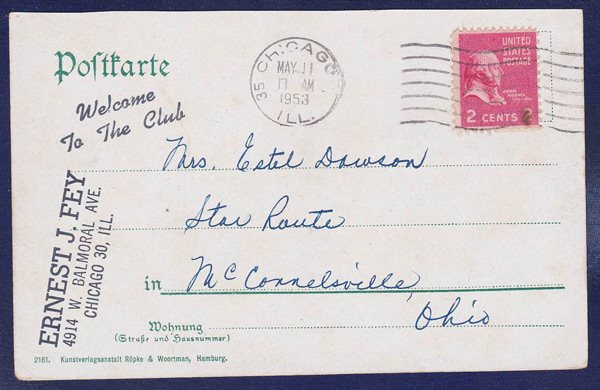 Postkarte
Welcome
To The Club
35 CHICAGO
MAY 11
11 AM
1953
ILL.
UNITED
STATES
POSTAGE
JOHN
ADAMS
2 CENTS
Mrs. Estel Dawson
Star Route
in McConnelsville,
Ohio
ERNEST J. FEY
4914 W. BALMORAL AVE.
CHICAGO 30, ILL.
Wohnung
(Straße und Hausnummer)
2161. Kunstverlagsanstalt Röpke & Woortman, Hamburg.